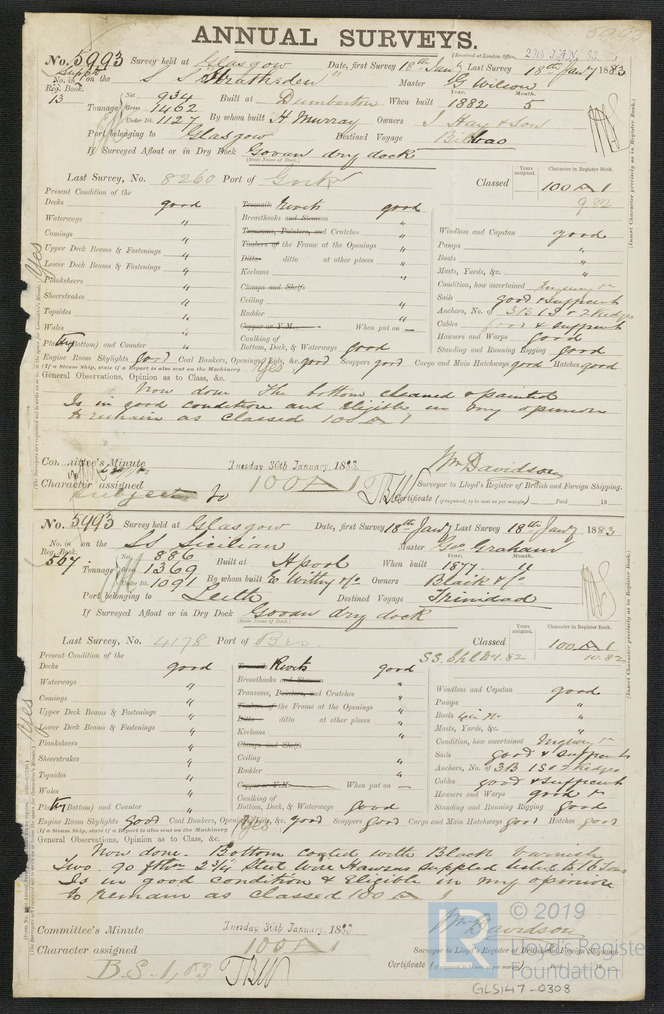 5993
ANNUAL SURVEYS.
(Received at London Office, 29th JAN. 83
No. 5993 Survey held at Glasgow Date, first Survey 18th Jany Last Survey 18th Jany 1883
Suppt
No. in on the S S Strathesden" Master G Wilson
Reg. Book.
13
Tonnage Net 934 Built at Dumbarton When built Year. 1882 Month. 5
Gross 1462
Under Dk. 1127 By whom built H Murray Owners J Hay & Son
Port belonging to Glasgow Destined Voyage Bilbao
If Surveyed Afloat or in Dry Dock Govan dry dock
(State Name of Dock.)
Last Survey, No. 8260 Port of Classed 100 A 1
Years assigned. Character in Register Book.
9.82
Present Condition of the
Decks good
Waterways "
Comings "
Upper Deck Beams & Fastenings "
Lower Deck Beams & Fastenings "
Planksheers "
Sheerstrakes "
Topsides "
Wales "
Plating (Bottom) and Counter "
Treenails Rivets good
Breasthooks and Stemson "
Transoms, Pointers, and Crutches "
Timbers of the Frame at the Openings "
Ditto ditto at other places "
Keelsons "
Clamps and Shelfs
Ceiling "
Rudder "
Copper or Y.M. When put on —
Caulking of
Bottom, Deck, & Waterways Good
Windlass and Capstan good
Pumps "
Boats "
Masts, Yards, &c. "
Condition, how ascertained Inquiry
Sails good & sufficient
Anchors, No. of 3B 1S & 2 Kedges
Cables good & sufficient
Hawsers and Warps good
Standing and Running Rigging Good
Engine Room Skylights Good Coal Bunkers, Openings, Lids, &c. good Scuppers good Cargo and Main Hatchways good Hatches good
(If a Steam Ship, state if a Report is also sent on the Machinery Yes
General Observations, Opinion as to Class, &c.
Now done The bottom cleaned & painted
Is in good condition and Eligible in my opinion
to remain as classed 100 A 1
Committee's Minute Tuesday 30th January, 1883 Wm Davidson
Surveyor to Lloyd's Register of British and Foreign Shipping.
Character assigned 100 A 1
Certificate (if required, to be sent as per margin) Paid 18
subject to
Yes
(Insert Character precisely as in Register Book.)
No. 5993 Survey held at Glasgow Date, first Survey 18th Jany Last Survey 18th Jany 1883
No. in on the SS Sicilian Master Geo Graham
Reg. Book.
567
Tonnage Net 886 Built at Hpool When built Year. 1877 Month. 11
Gross 1369
Under Dk. 1091 By whom built E Withy & Co Owners Black & Co
Port belonging to Leith Destined Voyage Trinidad
If Surveyed Afloat or in Dry Dock Govan dry dock
(State Name of Dock.)
Last Survey, No. 4178 Port of Brs Classed 100 A 1
Years assigned. Character in Register Book.
10.82
Present Condition of the
Decks good
Waterways "
Comings "
Upper Deck Beams & Fastenings "
Lower Deck Beams & Fastenings "
Planksheers "
Sheerstrakes "
Topsides "
Wales "
Plating (Bottom) and Counter "
Treenails Rivets good
Breasthooks and Stemson "
Transoms, Pointers, and Crutches "
Timbers of the Frame at the Openings "
Ditto ditto at other places "
Keelsons "
Clamps and Shelfs
Ceiling "
Rudder "
Copper or Y.M. When put on —
Caulking of
Bottom, Deck, & Waterways Good
Windlass and Capstan good
Pumps "
Boats "
Masts, Yards, &c. "
Condition, how ascertained Inquiry
Sails good & sufficient
Anchors, No. of 3B 1S & 2 Kedges
Cables good & sufficient
Hawsers and Warps good
Standing and Running Rigging Good
Engine Room Skylights Good Coal Bunkers, Openings, Lids, &c. good Scuppers good Cargo and Main Hatchways good Hatches good
(If a Steam Ship, state if a Report is also sent on the Machinery Yes
General Observations, Opinion as to Class, &c.
Now done. Bottom coated with Black Varnish
Two 90 fthm 2¾ Steel Wire Hawsers supplied tested to 16 Tons
Is in good condition & Eligible in my opinion
to remain as classed 100 A 1
Committee's Minute Tuesday 30th January, 1883 Wm Davidson
Character assigned 100 A 1
Surveyor to Lloyd's Register of British and Foreign Shipping.
B.S. 1,83
Yes
(Insert Character precisely as in Register Book.)
© 2019
Lloyd's Register
Foundation
GLS147-0308